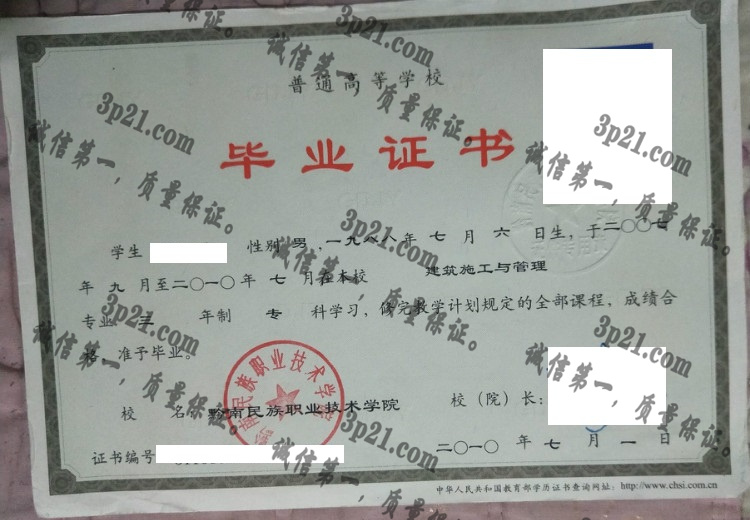 普通高等学校
毕业证书
学生 性别 男 ,一九八八年 七 月 六 日生,于二〇〇七
年 九 月至二〇一〇年 七 月在本校 建筑施工与管理
专业 三 年制 专 科学习,修完教学计划规定的全部课程,成绩合
格,准予毕业。
校 名:黔南民族职业技术学院 校(院)长:
二〇一〇 年 七 月 一 日
证书编号
中华人民共和国教育部学历证书查询网址: http://www.chsi.com.cn
黔南民族职业技术学院
3p21.com
诚信第一,质量保证。
3p21.com
诚信第一,质量保证。
3p21.com
诚信第一,质量保证。
3p21.com
诚信第一,质量保证。
3p21.com
诚信第一,质量保证。
3p21.com
诚信第一,质量保证。
3p21.com
诚信第一,质量保证。